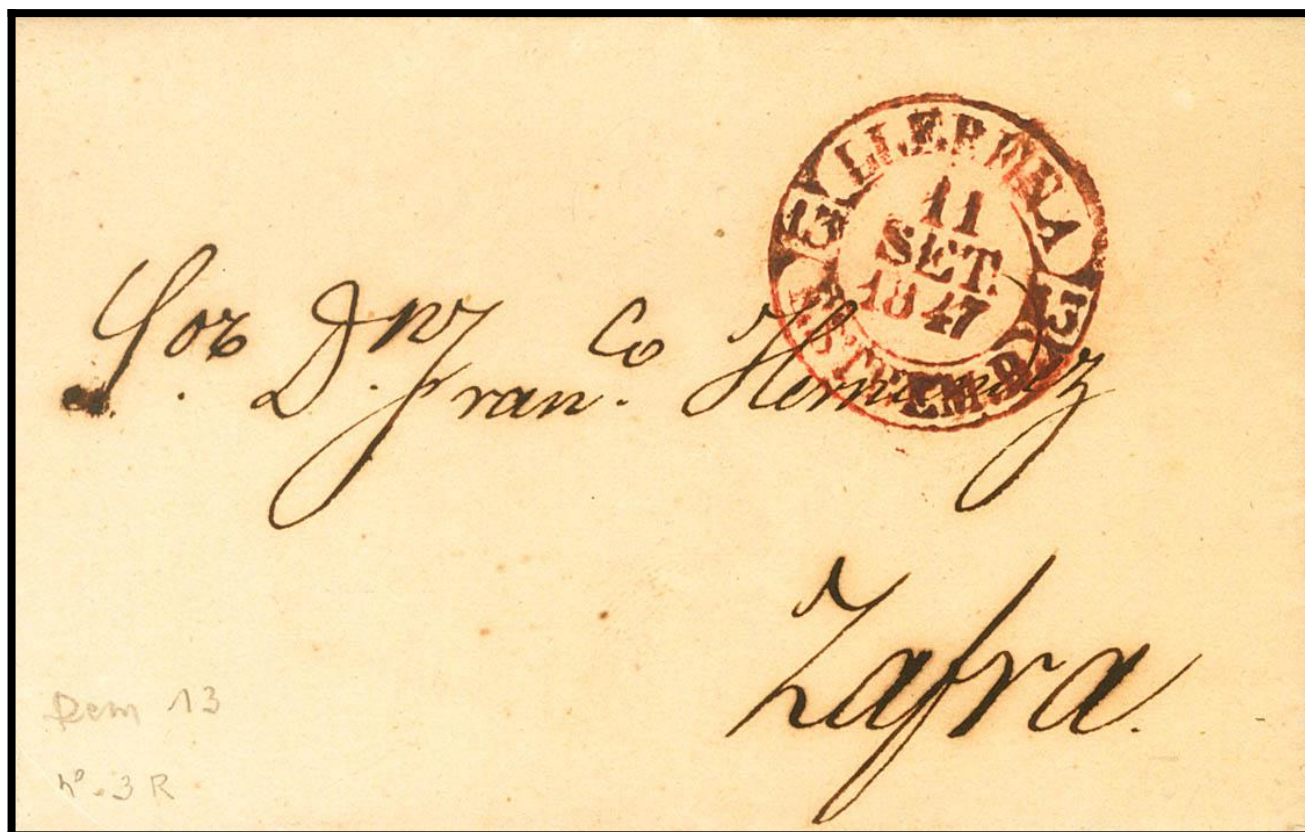 LLERENA
13 13
11
SET.
1847
ESTREMAD.
Sor D.n Fran.co Hernandez
Zafra.
Dem 13
nº.3 R